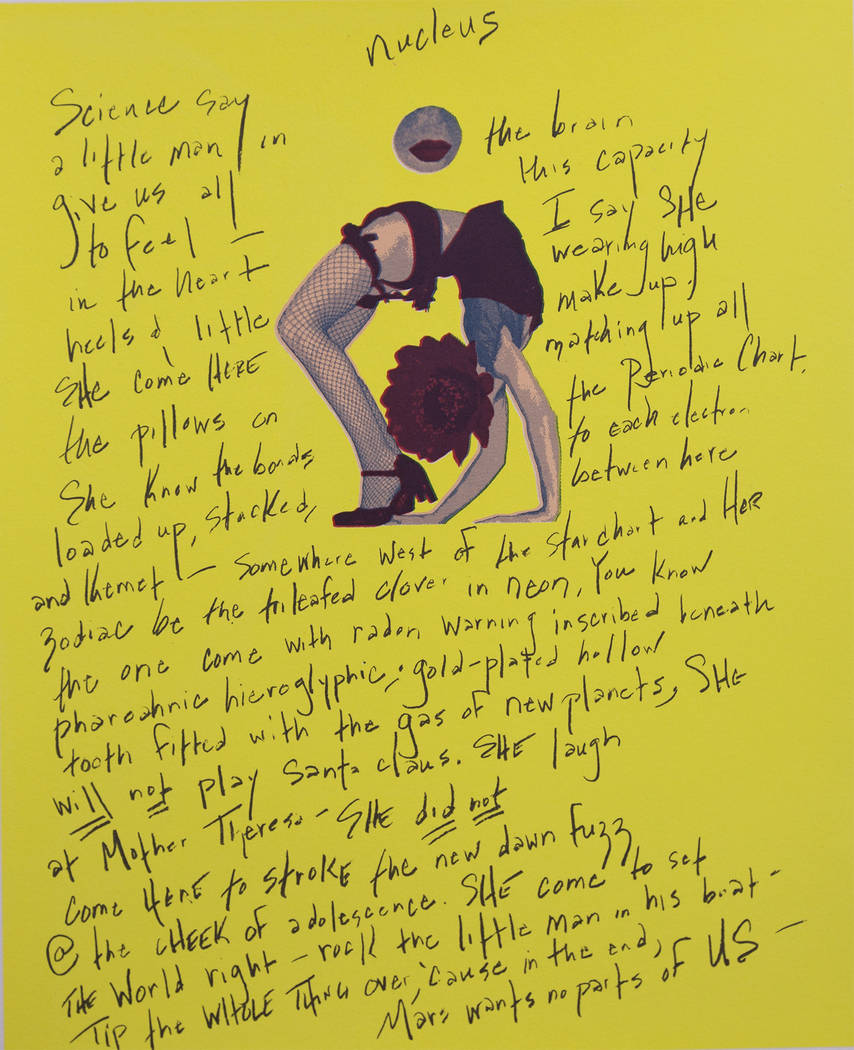 nucleus
Science say
a little man in the brain
give us all this capacity
to feel — I say SHE
in the heart wearing high
heels & little make up.
SHE come HERE matching up all
the pillows on the Periodic Chart.
She know the bonds to each electron
loaded up, stacked, between here
and Khemet — somewhere west of the star chart and HER
zodiac be the trileafed clover in neon, You know
the one come with radon warning inscribed beneath
pharoahnic hieroglyphic; gold-plated hollow
tooth fitted with the gas of new planets, SHE
will not play Santa claus. SHE laugh
at Mother Theresa — SHE did not
come HERE to stroke the new dawn fuzz
@ the CHEEK of adolescence. SHE come to set
THE World right — rock the little man in his boat —
Tip the WHOLE THING over, 'cause in the end,
Mars wants no parts of US —